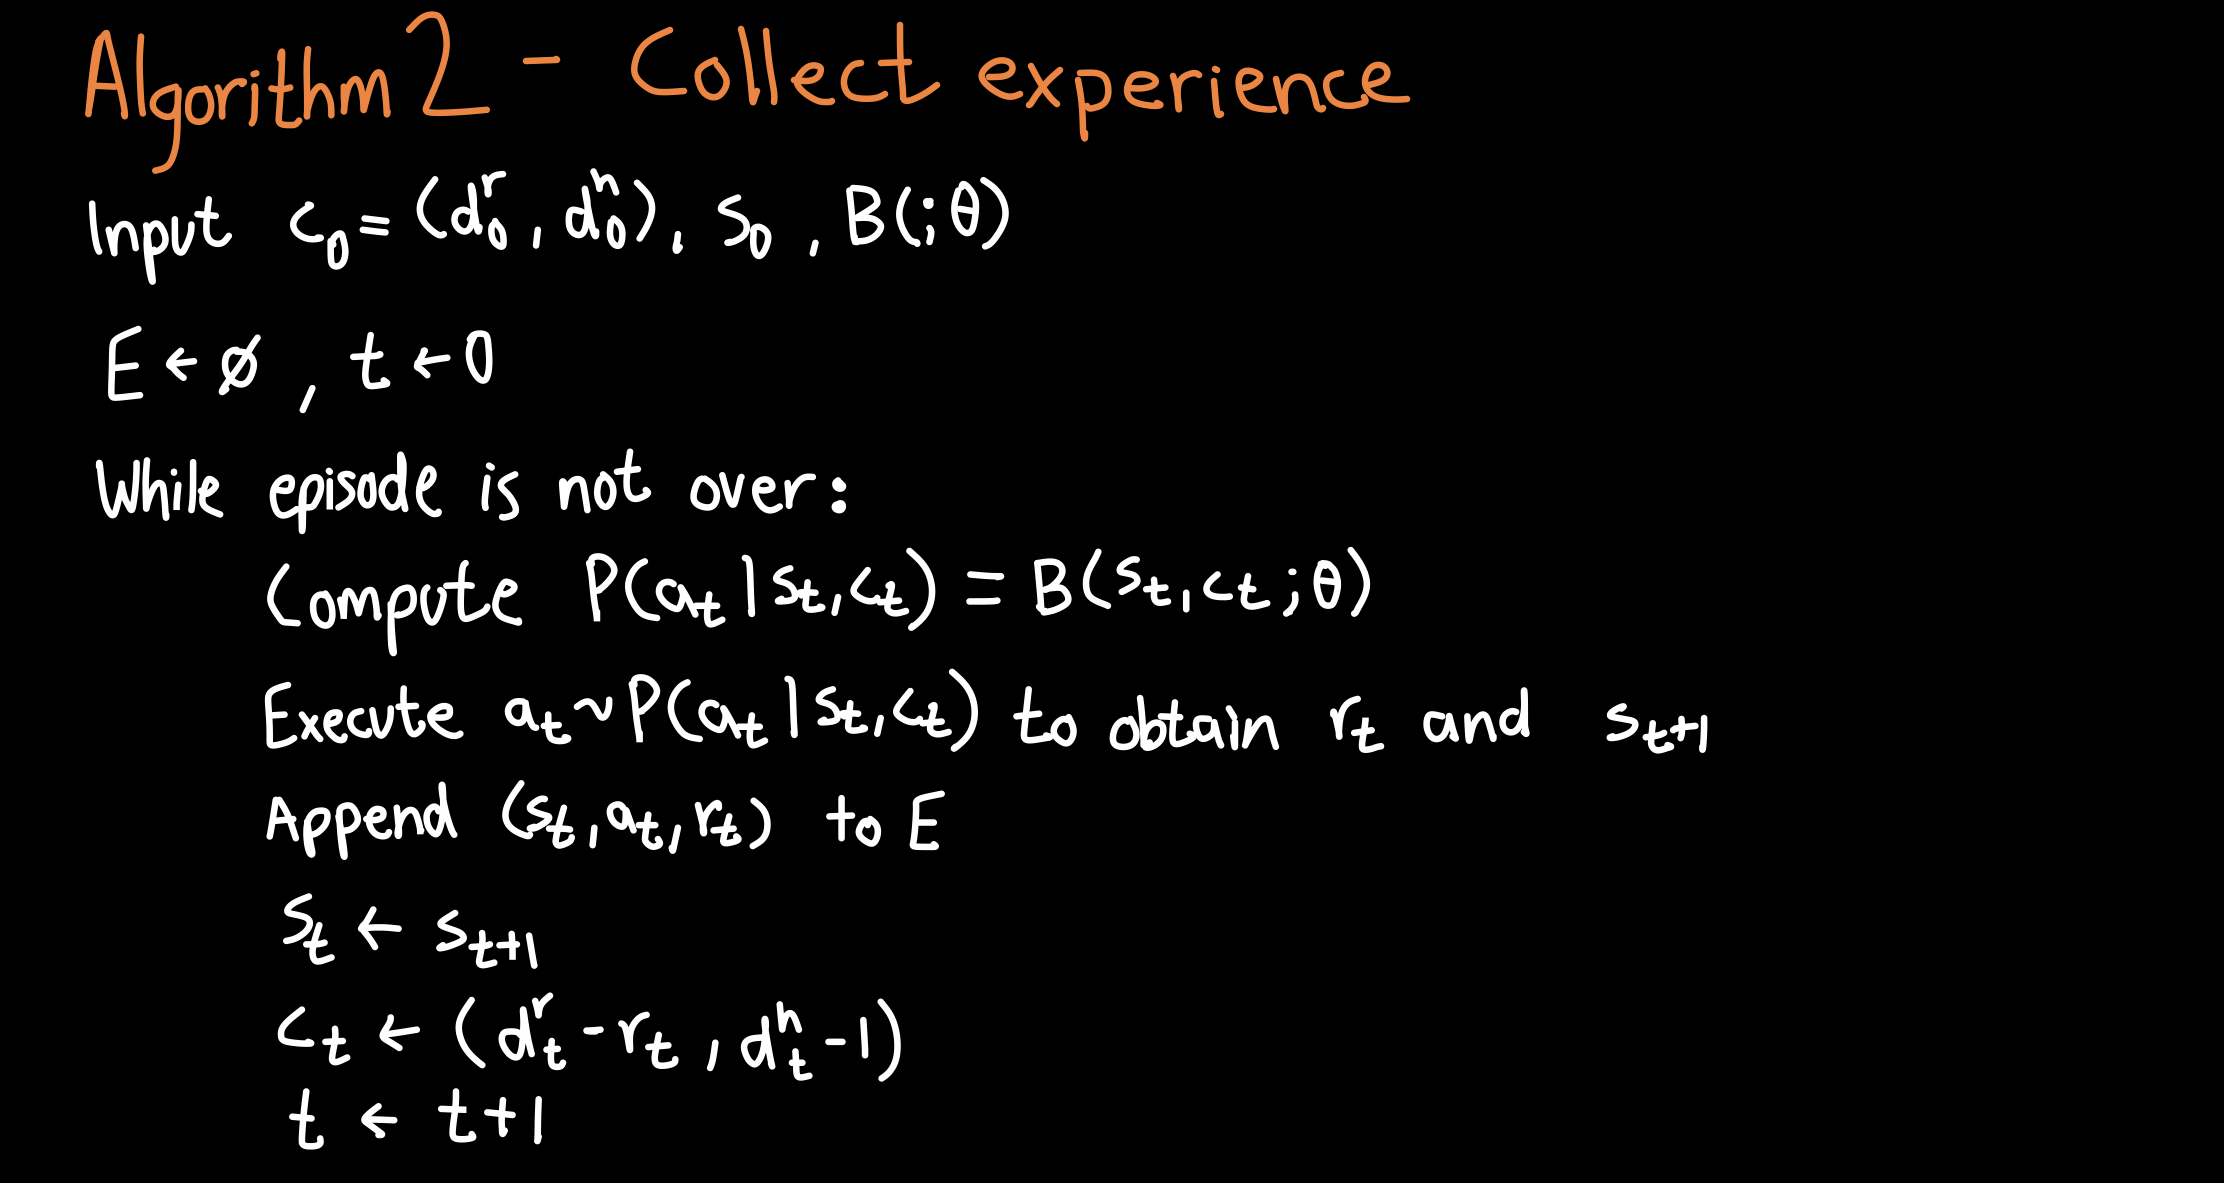 Algorithm 2 - Collect experience
Input c₀ = (d₀ʳ, d₀ʰ), s₀, B(;θ)
E ← ø, t ← 0
While episode is not over:
Compute P(aₜ|sₜ,cₜ) = B(sₜ,cₜ;θ)
Execute aₜ ~ P(aₜ|sₜ,cₜ) to obtain rₜ and sₜ₊₁
Append (sₜ,aₜ,rₜ) to E
sₜ ← sₜ₊₁
cₜ ← (dₜʳ - rₜ, dₜʰ - 1)
t ← t+1